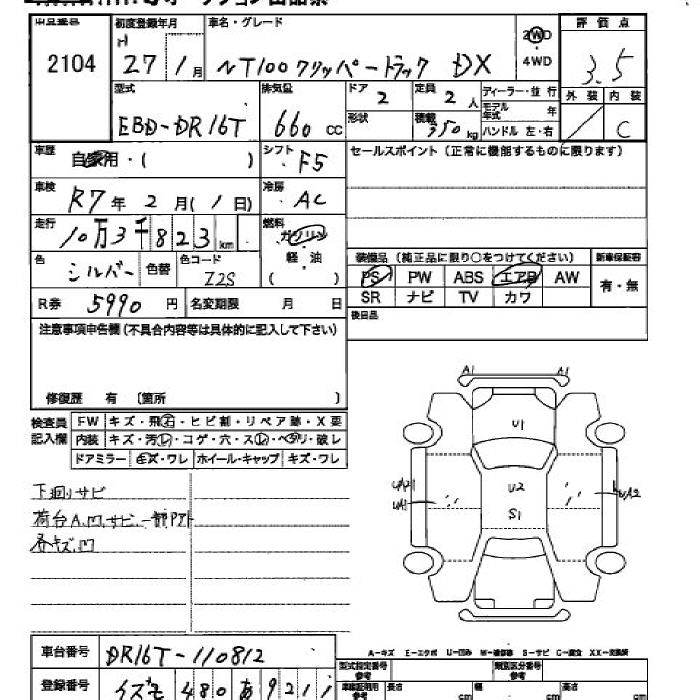 出品番号 初度登録年月 車名・グレード 評価点
2104 H 27年 1月 NT100クリッパートラック DX 2WD 3.5
4WD
型式 排気量 ドア 2 定員 2人 ディーラー・並行 外装 内装
EBD-DR16T 660 CC 形状 積載 350kg モデル年式 年
ハンドル 左・右 C
車歴 自家用・( ) シフト F5 セールスポイント(正常に機能するものに限ります)
車検 R7年 2月(1日) 冷房 AC
走行 10万3千823km 燃料 ガソリン
軽・油
( )
色 シルバー 色替 色コード Z2S
装備品(純正品に限り○をつけてください) 新車保証書
PS PW ABS エアB AW 有・無
SR ナビ TV カワ
R券 5990円 名変期限 月 日
後日品
注意事項申告欄(不具合内容等は具体的に記入して下さい)
修復歴 有 〔箇所 〕
検査員記入欄 FW キズ・飛石・ヒビ割・リペア跡・X要
内装 キズ・汚レ・コゲ・穴・スレ・ヘタリ・破レ
ドアミラー キズ・ワレ ホイール・キャップ キズ・ワレ
下廻りサビ
荷台A.凹.サビ.一部アト
各キズ.凹
A1 A1
U1
U2
S1
UA2
UA1
UA2
A-キズ E-エクボ U-凹み W-補修跡 S-サビ C-腐食 XX-交換済
車台番号 DR16T-110812
型式指定番号 参考 類別区分番号 参考
登録番号 イズモ 480 あ 9211
車庫証明用 参考 長さ cm 幅 cm 高さ cm